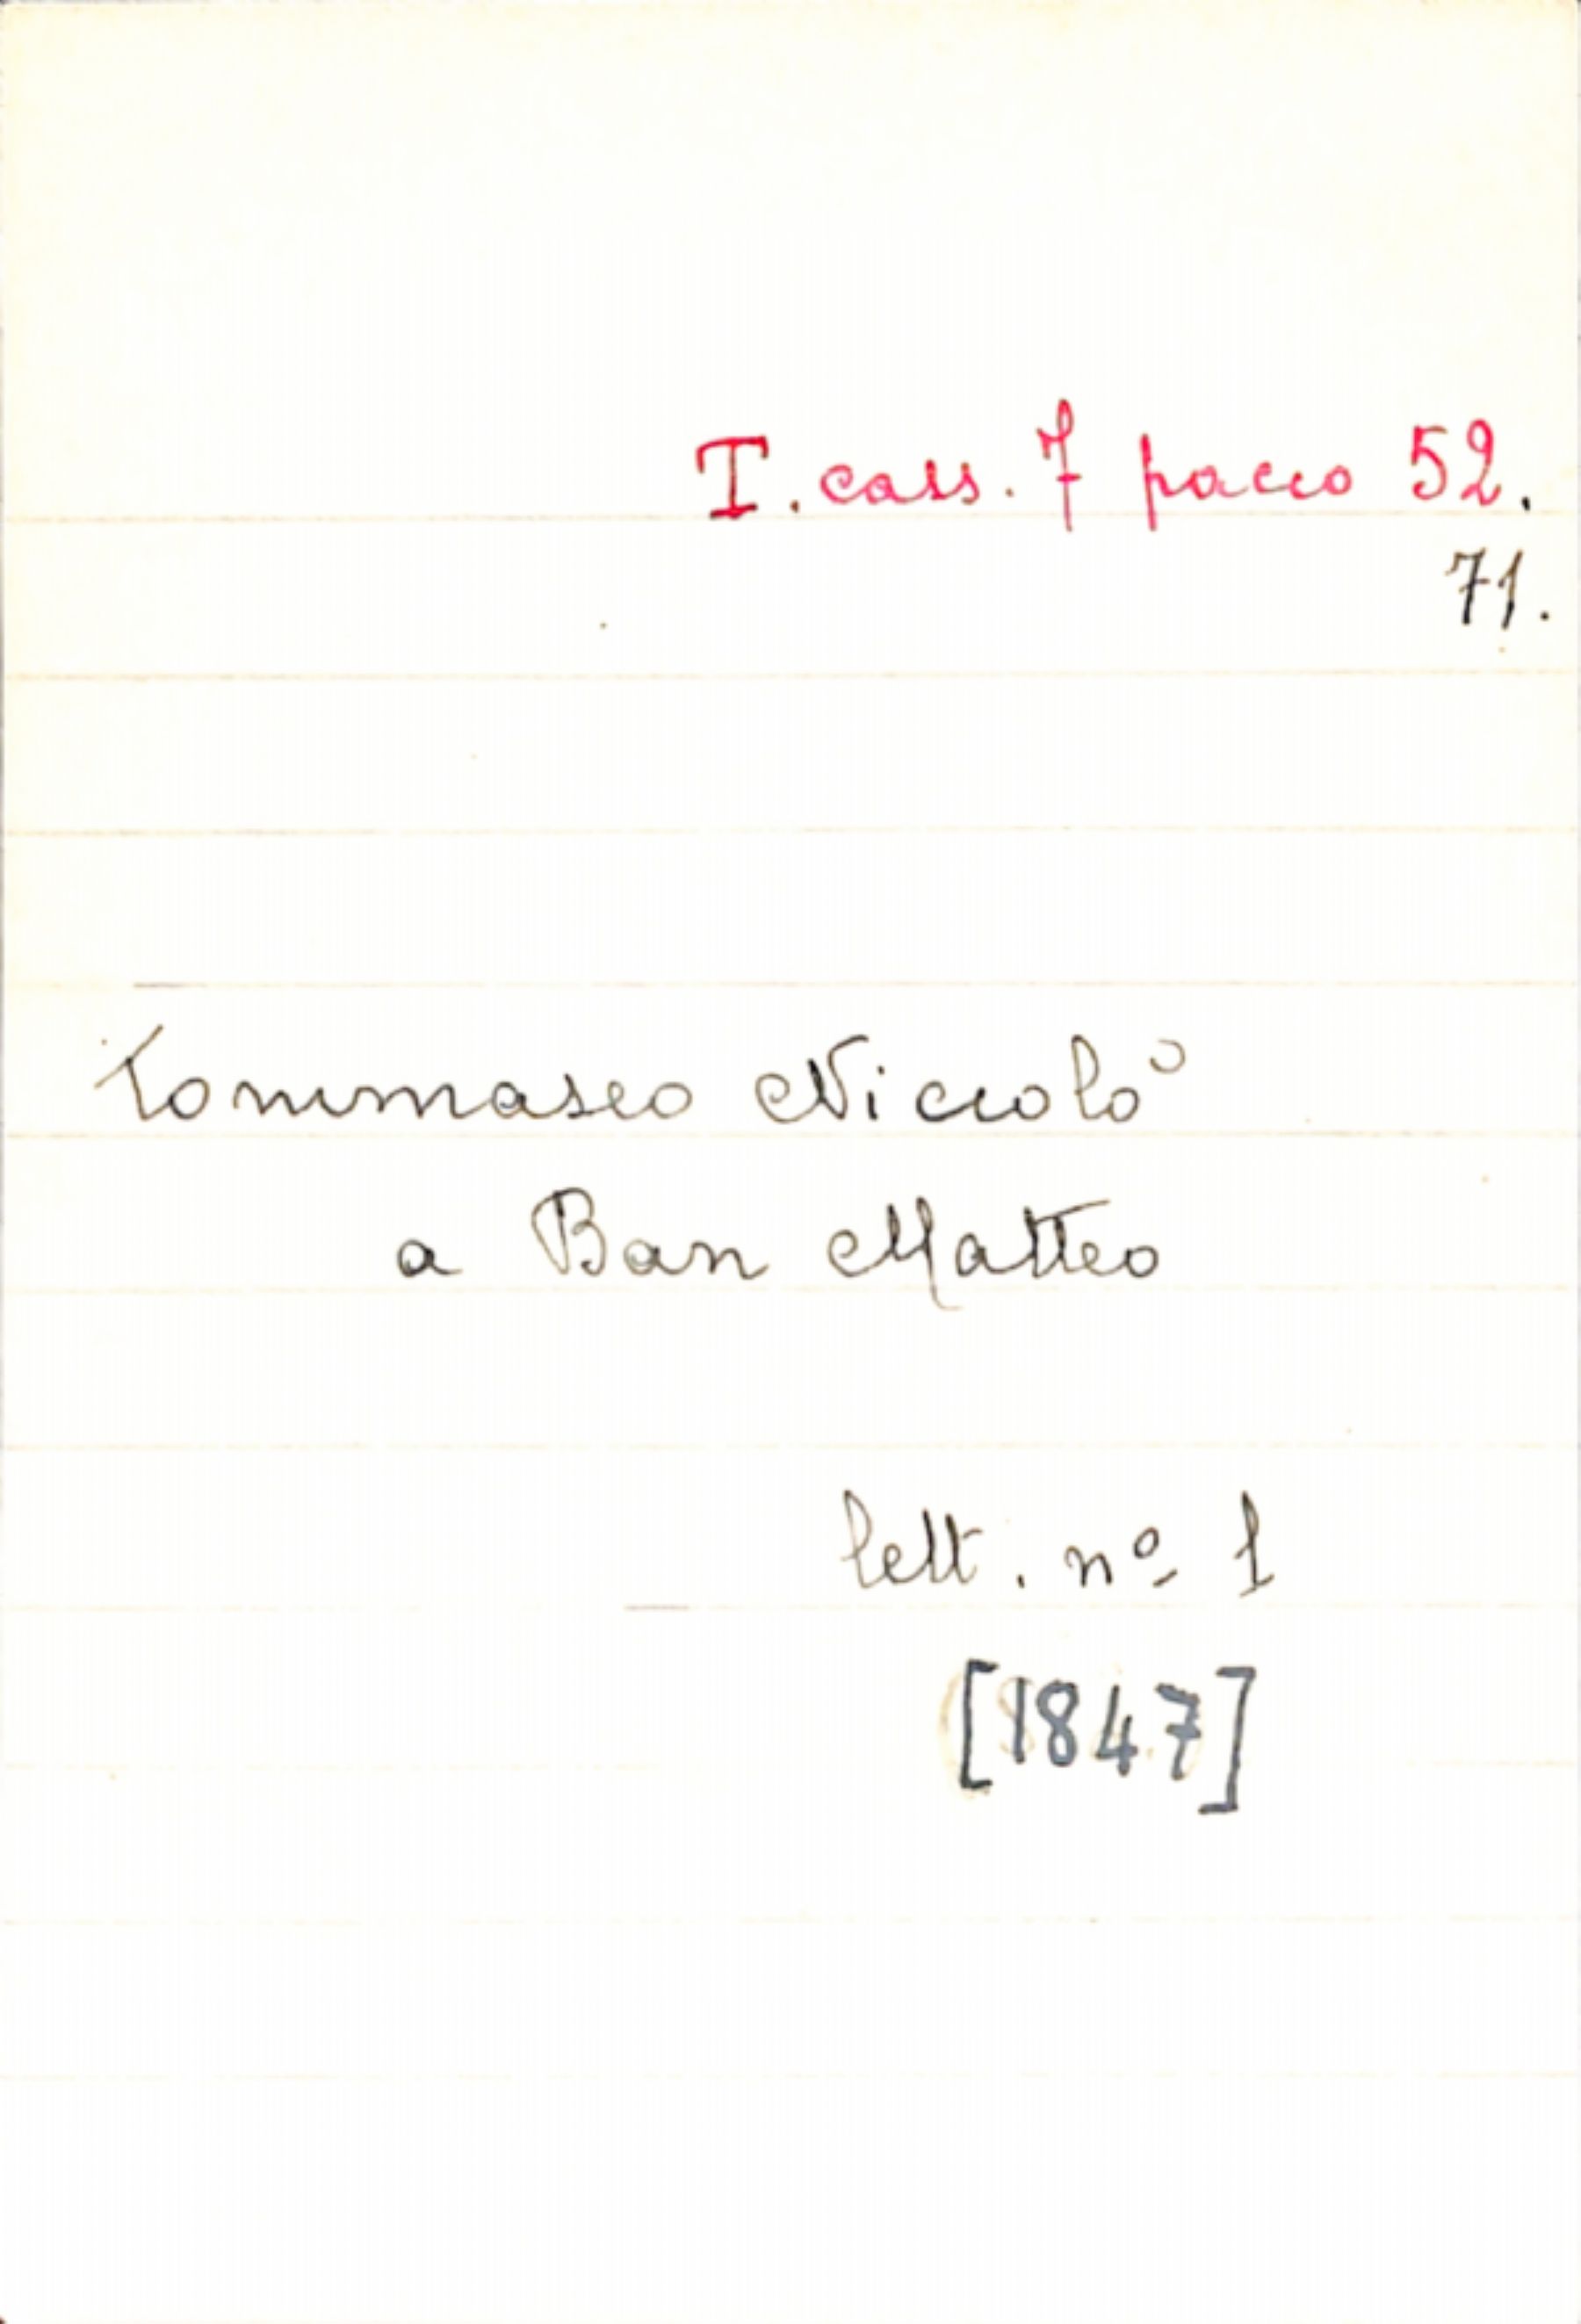 T. cass. 7 pacco 52.
71.
Tommaseo Niccolò
a Ban Matteo
lett. nº 1
[1847]